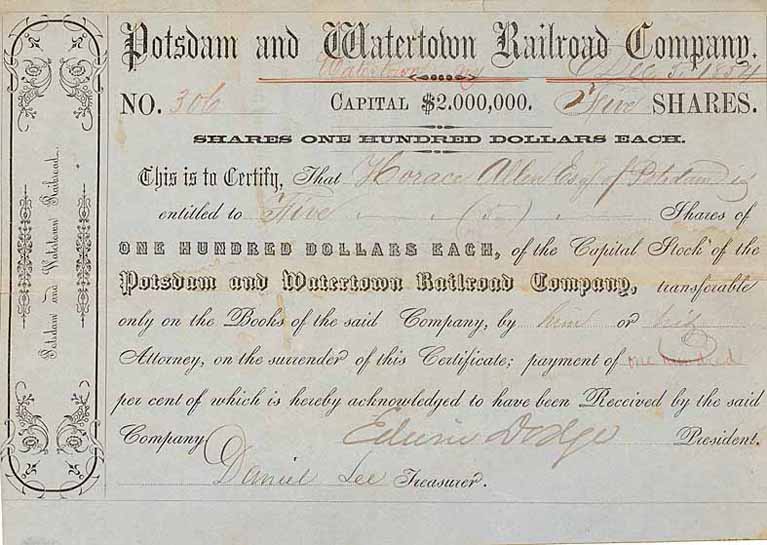 Potsdam and Watertown Railroad Company.
Watertown NY Dec. 5. 1854
NO. 306 CAPITAL $2.000,000. Five SHARES.
SHARES ONE HUNDRED DOLLARS EACH.
This is to Certify, That Horace Allen Esq of Potsdam is
entitled to Five (5) Shares of
ONE HUNDRED DOLLARS EACH, of the Capital Stock of the
Potsdam and Watertown Railroad Company, transferable
only on the Books of the said Company, by him or his
Attorney, on the surrender of this Certificate; payment of one hundred
per cent of which is hereby acknowledged to have been Received by the said
Company Edwin Dodge President.
Daniel Lee Treasurer.
Potsdam and Watertown Railroad.